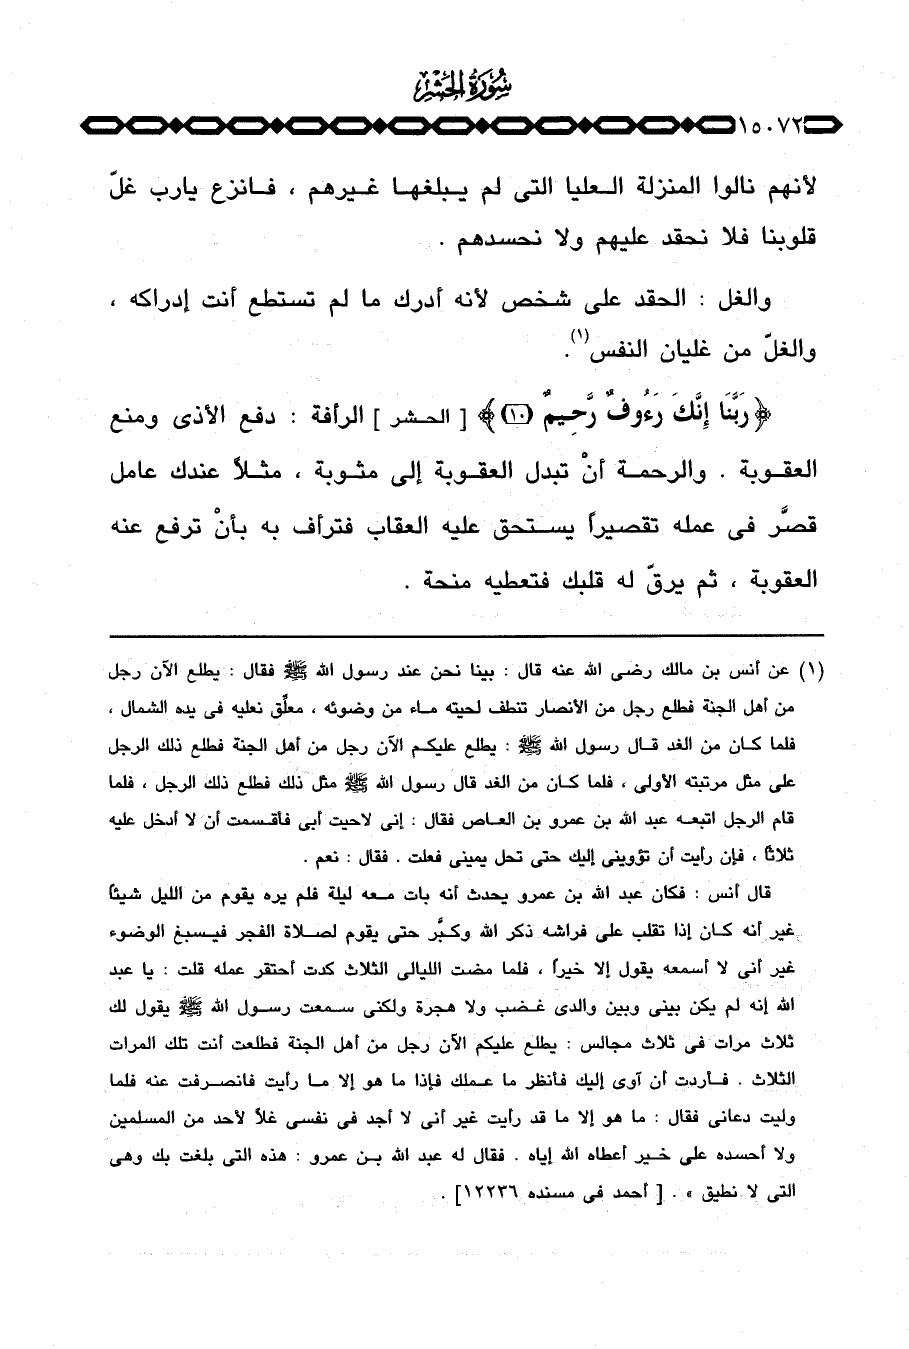 سُورَةُ الحَشْرِ
١٥٠٧٢
لأنهم نالوا المنزلة العليا التى لم يبلغها غيرهم ، فانزع يارب غلّ
قلوبنا فلا نحقد عليهم ولا نحسدهم .
والغل : الحقد على شخص لأنه أدرك ما لم تستطع أنت إدراكه ،
والغلّ من غليان النفس(١).
﴿ رَبَّنَا إِنَّكَ رَءُوفٌ رَّحِيمٌ (١٠)﴾ [ الحشر ] الرأفة : دفع الأذى ومنع
العقوبة . والرحمة أنْ تبدل العقوبة إلى مثوبة ، مثلاً عندك عامل
قصَّر فى عمله تقصيراً يستحق عليه العقاب فترأف به بأنْ ترفع عنه
العقوبة ، ثم يرقّ له قلبك فتعطيه منحة .
(١) عن أنس بن مالك رضى الله عنه قال : بينا نحن عند رسول الله ﷺ فقال : يطلع الآن رجل
من أهل الجنة فطلع رجل من الأنصار تنطف لحيته ماء من وضوئه ، معلِّق نعليه فى يده الشمال ،
فلما كان من الغد قال رسول الله ﷺ : يطلع عليكم الآن رجل من أهل الجنة فطلع ذلك الرجل
على مثل مرتبته الأولى ، فلما كان من الغد قال رسول الله ﷺ مثل ذلك فطلع ذلك الرجل ، فلما
قام الرجل اتبعه عبد الله بن عمرو بن العاص فقال : إنى لاحيت أبى فأقسمت أن لا أدخل عليه
ثلاثاً ، فإن رأيت أن تؤوينى إليك حتى تحل يمينى فعلت . فقال : نعم .
قال أنس : فكان عبد الله بن عمرو يحدث أنه بات معه ليلة فلم يره يقوم من الليل شيئاً
غير أنه كان إذا تقلب على فراشه ذكر الله وكبَّر حتى يقوم لصلاة الفجر فيسبغ الوضوء
غير أنى لا أسمعه يقول إلا خيراً ، فلما مضت الليالى الثلاث كدت أحتقر عمله قلت : يا عبد
الله إنه لم يكن بينى وبين والدى غضب ولا هجرة ولكنى سمعت رسول الله ﷺ يقول لك
ثلاث مرات فى ثلاث مجالس : يطلع عليكم الآن رجل من أهل الجنة فطلعت أنت تلك المرات
الثلاث . فأردت أن آوى إليك فأنظر ما عملك فإذا ما هو إلا ما رأيت فانصرفت عنه فلما
وليت دعانى فقال : ما هو إلا ما قد رأيت غير أنى لا أجد فى نفسى غلاً لأحد من المسلمين
ولا أحسده على خير أعطاه الله إياه . فقال له عبد الله بن عمرو : هذه التى بلغت بك وهى
التى لا نطيق » . [ أحمد فى مسنده ١٢٢٣٦] .